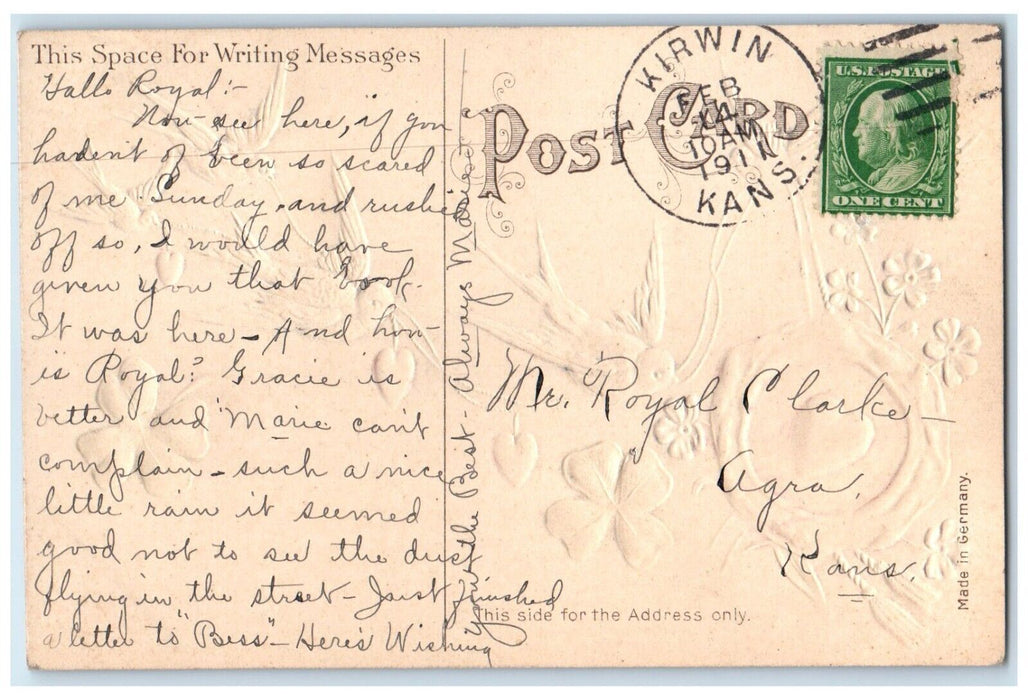 This Space For Writing Messages
Hallo Royal:-
Now see here, if you
hadent of been so scared
of me Sunday, and rushed
off so, I would have
given you that book.
It was here - And how
is Royal? Gracie is
better and "Marie can't
complain - such a nice
little rain it seemed
good not to see the dust
flying in the street - Just finished
a letter to "Bess" - Here's Wishing
you the Best - Always Marie
POST CARD
KIRWIN
FEB
14
10AM
1911
KANS.
U.S. POSTAGE
ONE CENT
Mr. Royal Clarke -
Agra,
Kans.
This side for the Address only.
Made in Germany.